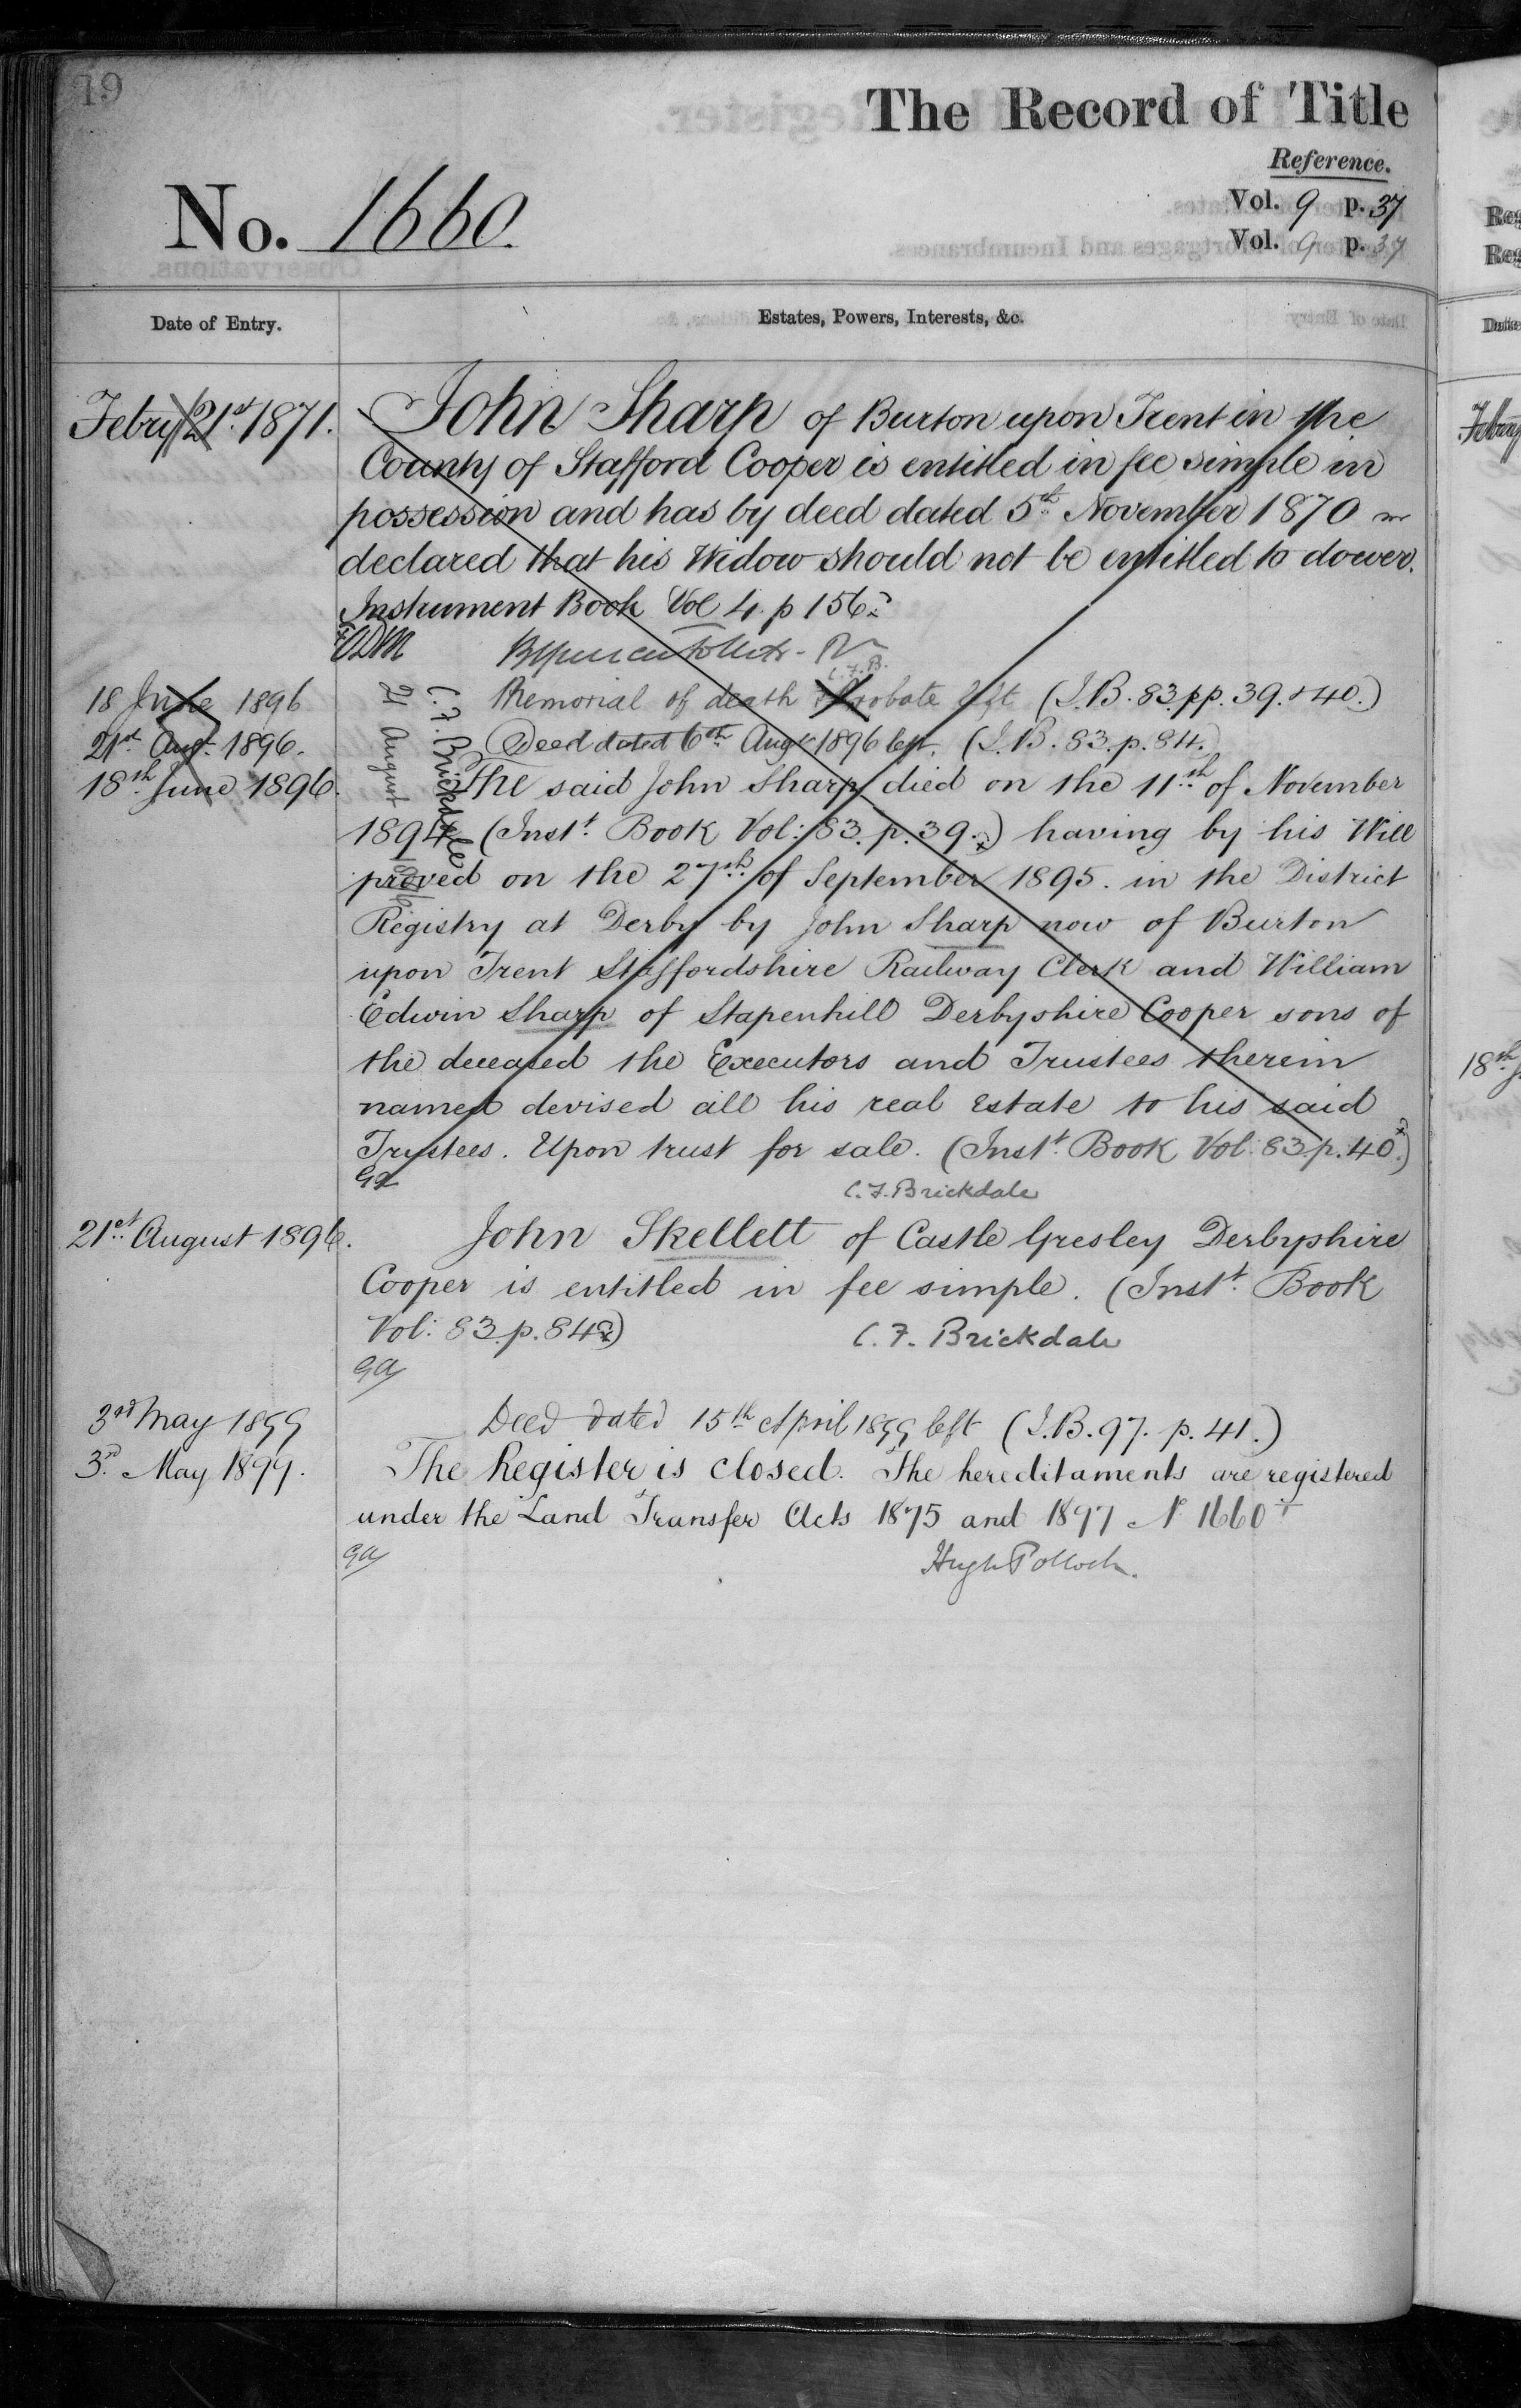 19
The Record of Title
Reference.
No. 1660.
Vol. 9 p. 37
Vol. 9 p. 37
Date of Entry.
Estates, Powers, Interests, &c.
Febry 21st 1871.
John Sharp of Burton upon Trent in the
County of Stafford Cooper is entitled in fee simple in
possession and has by deed dated 5th November 1870
declared that his Widow should not be entitled to dower.
Instrument Book Vol 4. p 156
C.F.B.
18 June 1896
Memorial of death Probate left (I.B. 83. pp. 39. & 40.)
21st Augt. 1896.
Deed dated 6th Augt 1896 left. (I.B. 83. p. 84.)
C. F. Brickdale
21 August 1896
18th June 1896.
The said John Sharp died on the 11th of November
1894 (Inst. Book Vol: 83. p. 39.) having by his Will
proved on the 27th of September 1895. in the District
Registry at Derby by John Sharp now of Burton
upon Trent Staffordshire Railway Clerk and William
Edwin Sharp of Stapenhill Derbyshire Cooper sons of
the deceased the Executors and Trustees therein
named devised all his real Estate to his said
Trustees. Upon trust for sale. (Inst. Book Vol: 83 p. 40.)
C. F. Brickdale
21st August 1896.
John Skellett of Castle Gresley Derbyshire
Cooper is entitled in fee simple. (Inst. Book
Vol: 83. p. 84)
C. F. Brickdale
3rd May 1899
Deed dated 15th April 1899 left (I.B. 97. p. 41.)
3rd May 1899.
The Register is closed. The hereditaments are registered
under the Land Transfer Acts 1875 and 1897 No 1660
Hugh Pollock.
Reg
Reg
Date
Febry
18th J